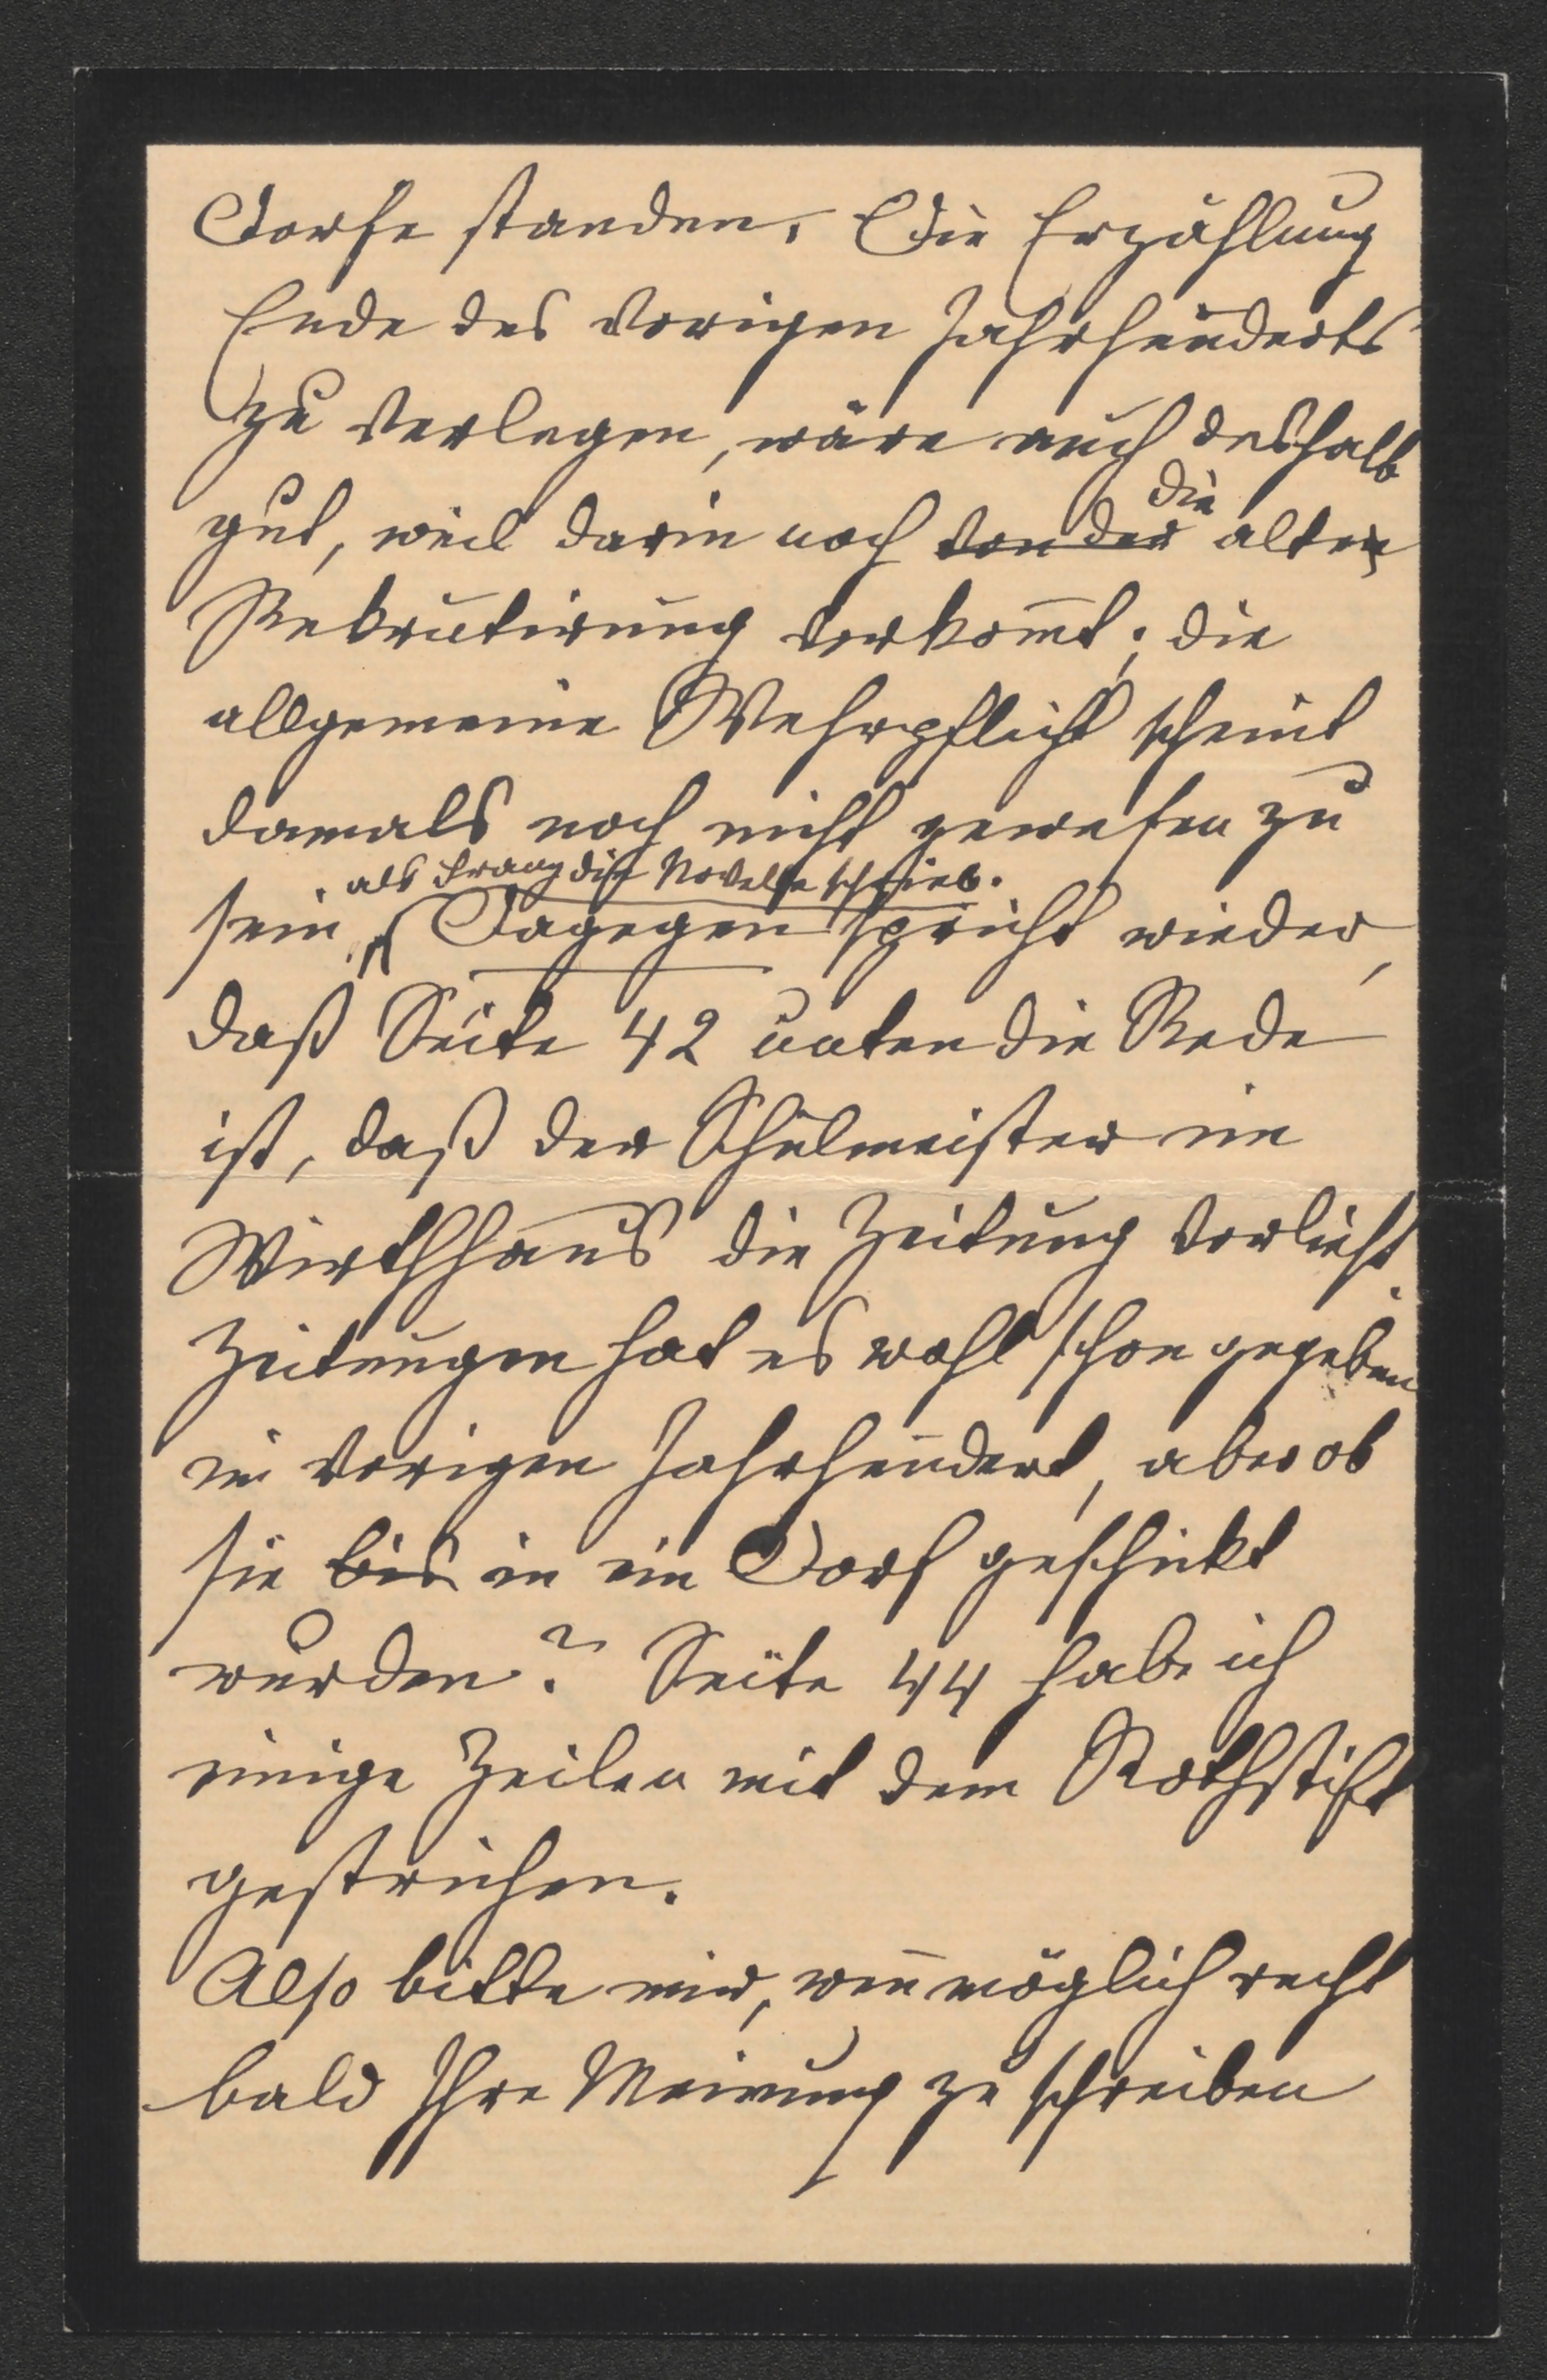 Dorfe standen. Die Erzählung
Ende des vorigen Jahrhunderts
zu verlegen, wäre auch deshalb
gut, weil darin noch von der die alten
Rekrutirung vorkom̅t; die
allgemeine Wehrpflicht scheint
damals noch nicht gewesen zu
als Franz die Novelle schrieb.
sein. Dagegen spricht wieder,
daß Seite 42 unten die Rede
ist, daß der Schulmeister im
Wirthhaus die Zeitung vorliest.
Zeitungen hat es wohl schon gegeben
im vorigen Jahrhundert, aber ob
sie bis in ein Dorf geschickt
wurden? Seite 44 habe ich
einige Zeilen mit dem Rothstift
gestrichen.
Also bitte mir, wen̅ möglich recht
bald Ihre Meinung zu schreiben